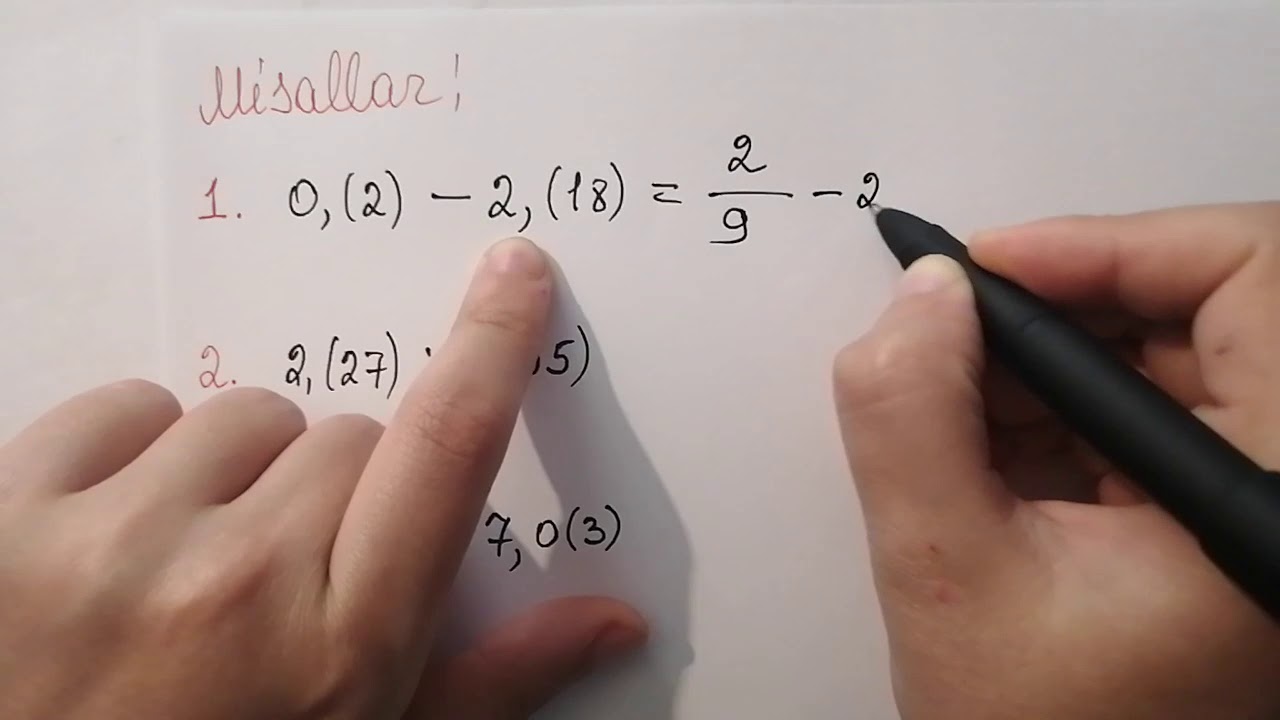 Misallar!
1. 0,(2) - 2,(18) = 2/9 - 2
2. 2,(27) 5)
7,0(3)